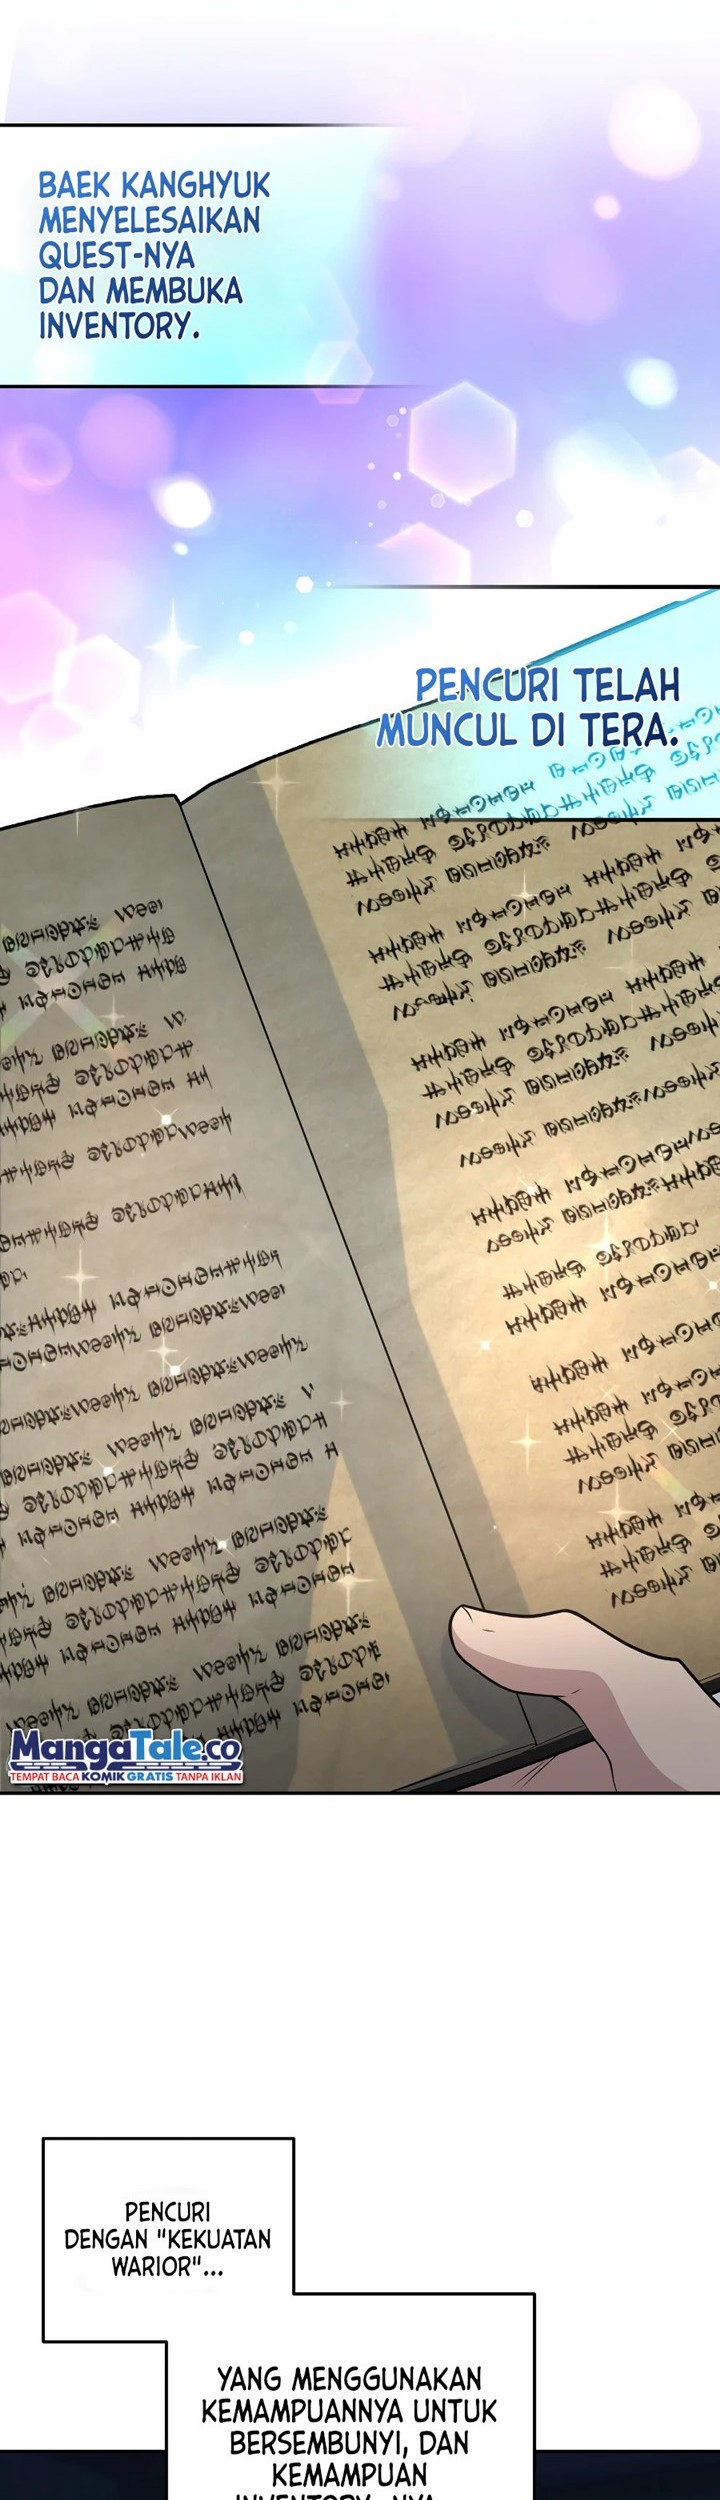 BAEK KANGHYUK
MENYELESAIKAN
QUEST-NYA
DAN MEMBUKA
INVENTORY.
PENCURI TELAH
MUNCUL DI TERA.
MangaTale.co
TEMPAT BACA KOMIK GRATIS TANPA IKLAN
PENCURI
DENGAN "KEKUATAN
WARIOR"...
YANG MENGGUNAKAN
KEMAMPUANNYA UNTUK
BERSEMBUNYI, DAN
KEMAMPUAN
INVENTORY-NYA